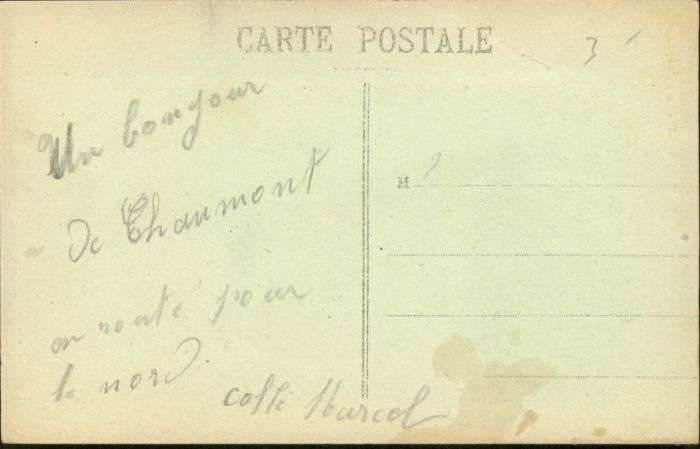 CARTE POSTALE
3
Un bonjour
de Chaumont
en route pour
le nord.
M